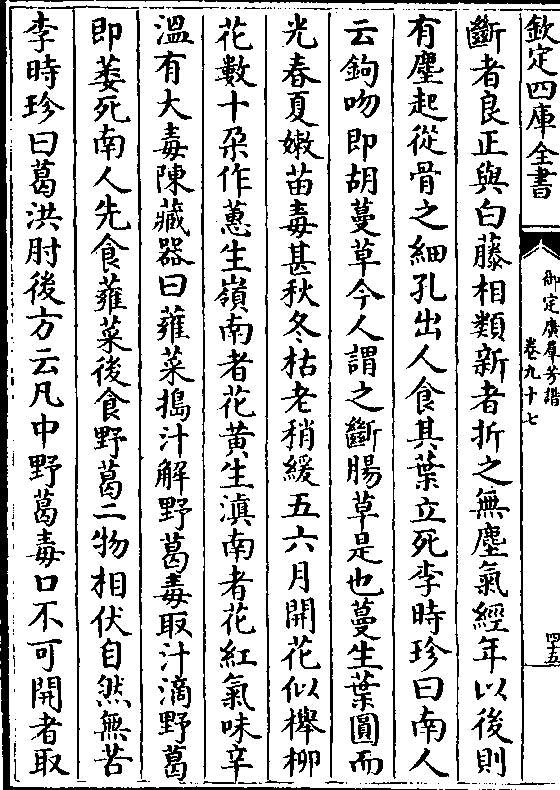 欽定四庫全書
御定廣羣芳譜
卷九十七
四十五
斷者良正與白藤相類新者折之無塵氣經年以後則
有塵起從骨之細孔出人食其葉立死李時珍曰南人
云鉤吻即胡蔓草今人謂之斷腸草是也蔓生葉圓而
光春夏嫩苗毒甚秋冬枯老稍緩五六月開花似櫸柳
花數十朶作蔥生嶺南者花黃生滇南者花紅氣味辛
溫有大毒陳藏器曰蕹菜搗汁解野葛毒取汁滴野葛
即萎死南人先食蕹菜後食野葛二物相伏自然無苦
李時珍曰葛洪肘後方云凡中野葛毒口不可開者取